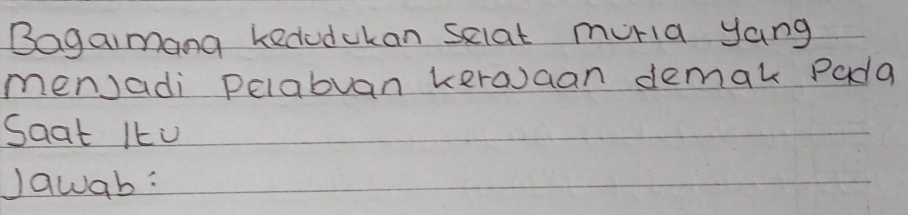 Bagaimana kedudukan Selat muria yang
menjadi Pelabuan kerajaan demak Pada
Saat Itu
Jawab: